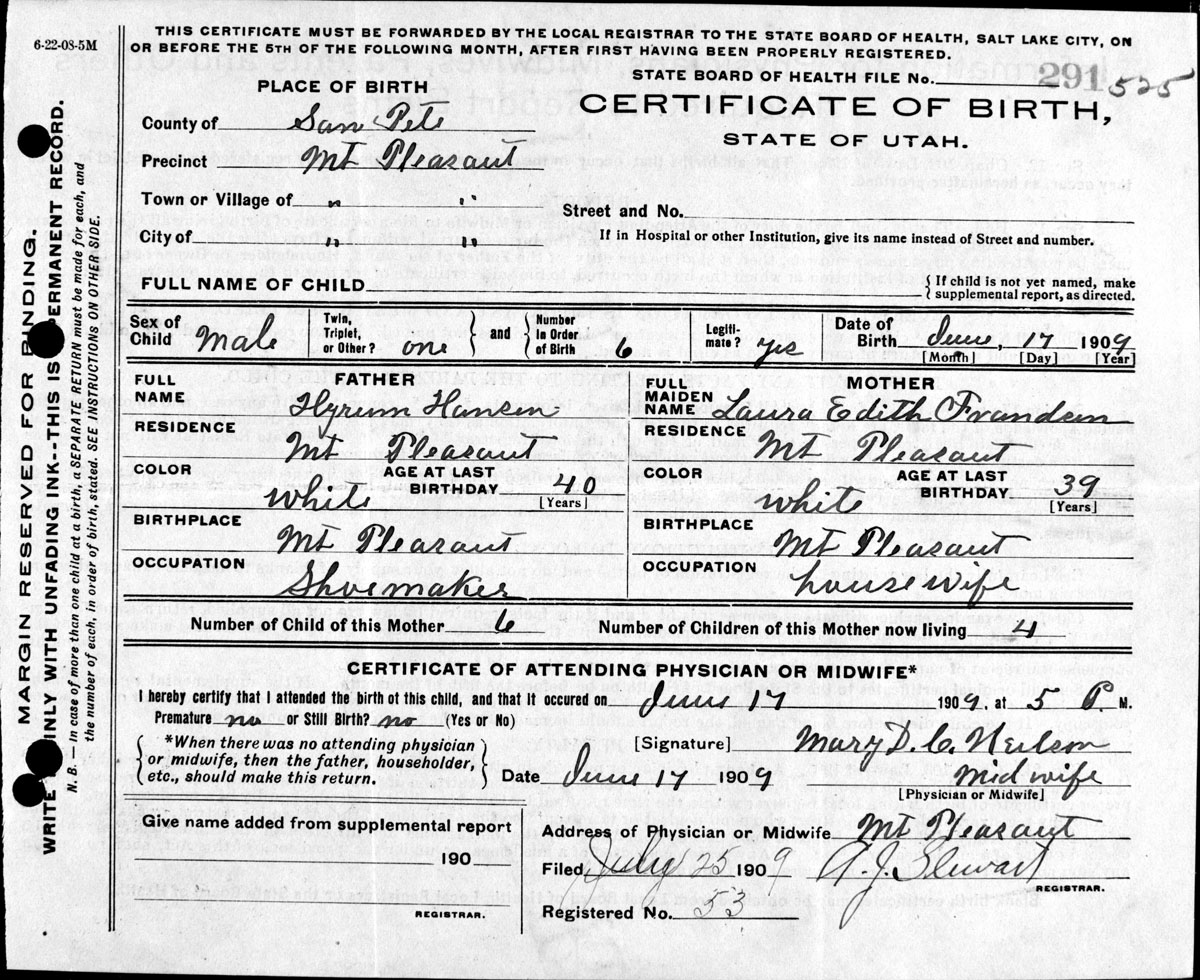 6-22-08-5M
THIS CERTIFICATE MUST BE FORWARDED BY THE LOCAL REGISTRAR TO THE STATE BOARD OF HEALTH, SALT LAKE CITY, ON
OR BEFORE THE 5TH OF THE FOLLOWING MONTH, AFTER FIRST HAVING BEEN PROPERLY REGISTERED.
STATE BOARD OF HEALTH FILE No. 291 525
PLACE OF BIRTH
CERTIFICATE OF BIRTH,
STATE OF UTAH.
County of San Pete
Precinct Mt Pleasant
Town or Village of " "
Street and No.
City of " "
If in Hospital or other Institution, give its name instead of Street and number.
FULL NAME OF CHILD
{ If child is not yet named, make
supplemental report, as directed.
Sex of Child Male Twin, Triplet, or Other? one and Number in Order of Birth 6 Legiti- mate? yes Date of Birth June, 17 1909
[Month] [Day] [Year]
FATHER
FULL NAME Hyrum Hansen
RESIDENCE
Mt Pleasant
COLOR white AGE AT LAST BIRTHDAY 40
[Years]
BIRTHPLACE
Mt Pleasant
OCCUPATION
Shoemaker
MOTHER
FULL MAIDEN NAME Laura Edith Frandsen
RESIDENCE
Mt Pleasant
COLOR white AGE AT LAST BIRTHDAY 39
[Years]
BIRTHPLACE
Mt Pleasant
OCCUPATION
housewife
Number of Child of this Mother 6 Number of Children of this Mother now living 4
CERTIFICATE OF ATTENDING PHYSICIAN OR MIDWIFE*
I hereby certify that I attended the birth of this child, and that it occured on June 17 1909, at 5 P. M.
Premature no or Still Birth? no (Yes or No)
{ *When there was no attending physician
or midwife, then the father, householder,
etc., should make this return. }
[Signature] Mary D. C. Neilson
Date June 17 1909 Midwife
[Physician or Midwife]
Give name added from supplemental report
190
REGISTRAR.
Address of Physician or Midwife Mt Pleasant
Filed July 25 1909 A. J. Stewart
REGISTRAR.
Registered No. 53
MARGIN RESERVED FOR BINDING.
WRITE INLY WITH UNFADING INK--THIS IS PERMANENT RECORD.
N. B.—In case of more than one child at a birth, a SEPARATE RETURN must be made for each, and
the number of each, in order of birth, stated. SEE INSTRUCTIONS ON OTHER SIDE.